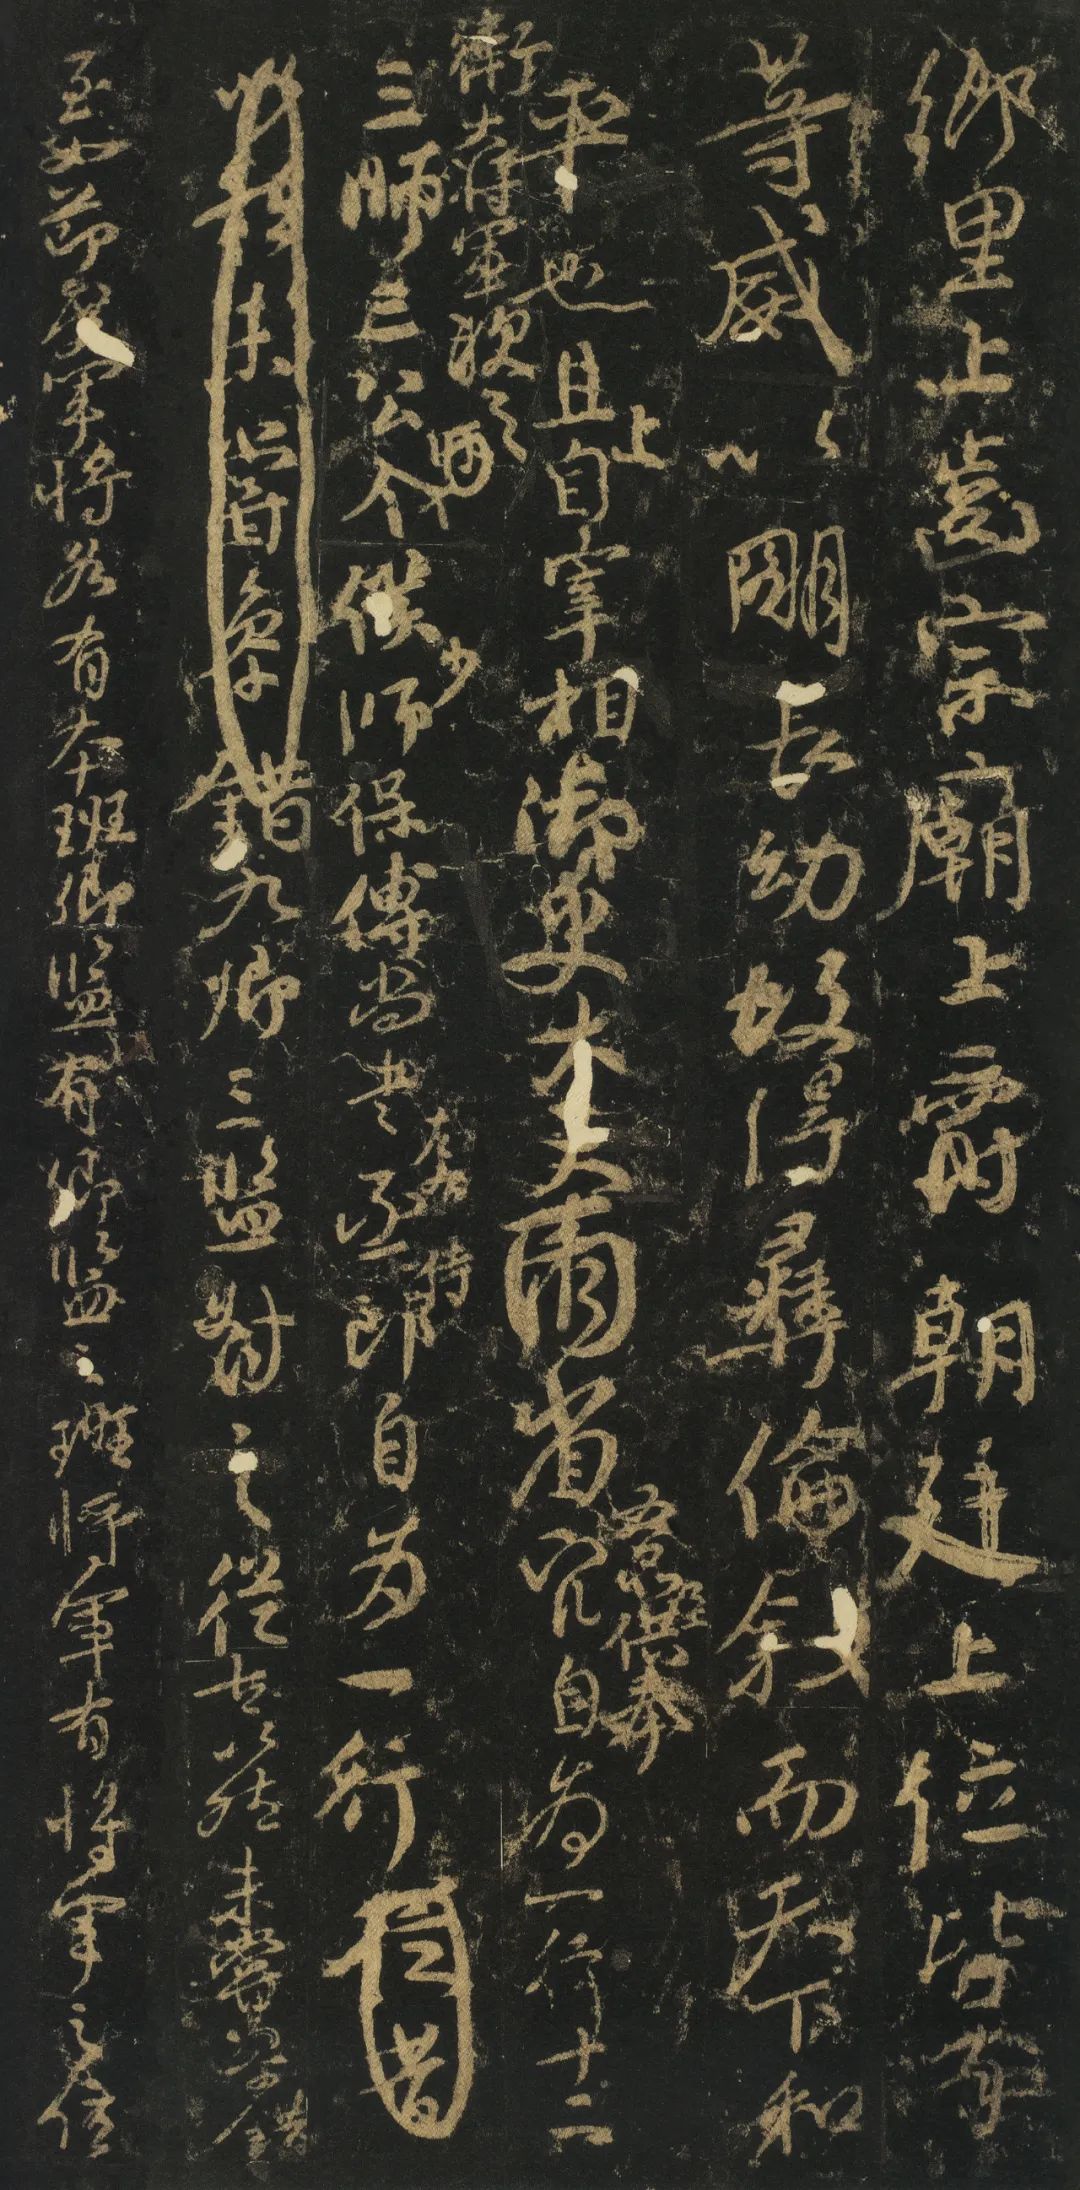 鄉里上齒宗廟上爵朝廷上位皆有
等威以明長幼故得彝倫敘而天下和
平也且上自宰相御史大夫兩省五品已上供奉官自為一行十二
衛大將軍次之
三師三公令僕少師保傅尚書左右丞侍郎自為一行
未嘗參錯九卿三監對之從古以然未嘗參錯
至如節度軍將各有本班卿監有卿監之班將軍有將軍之位